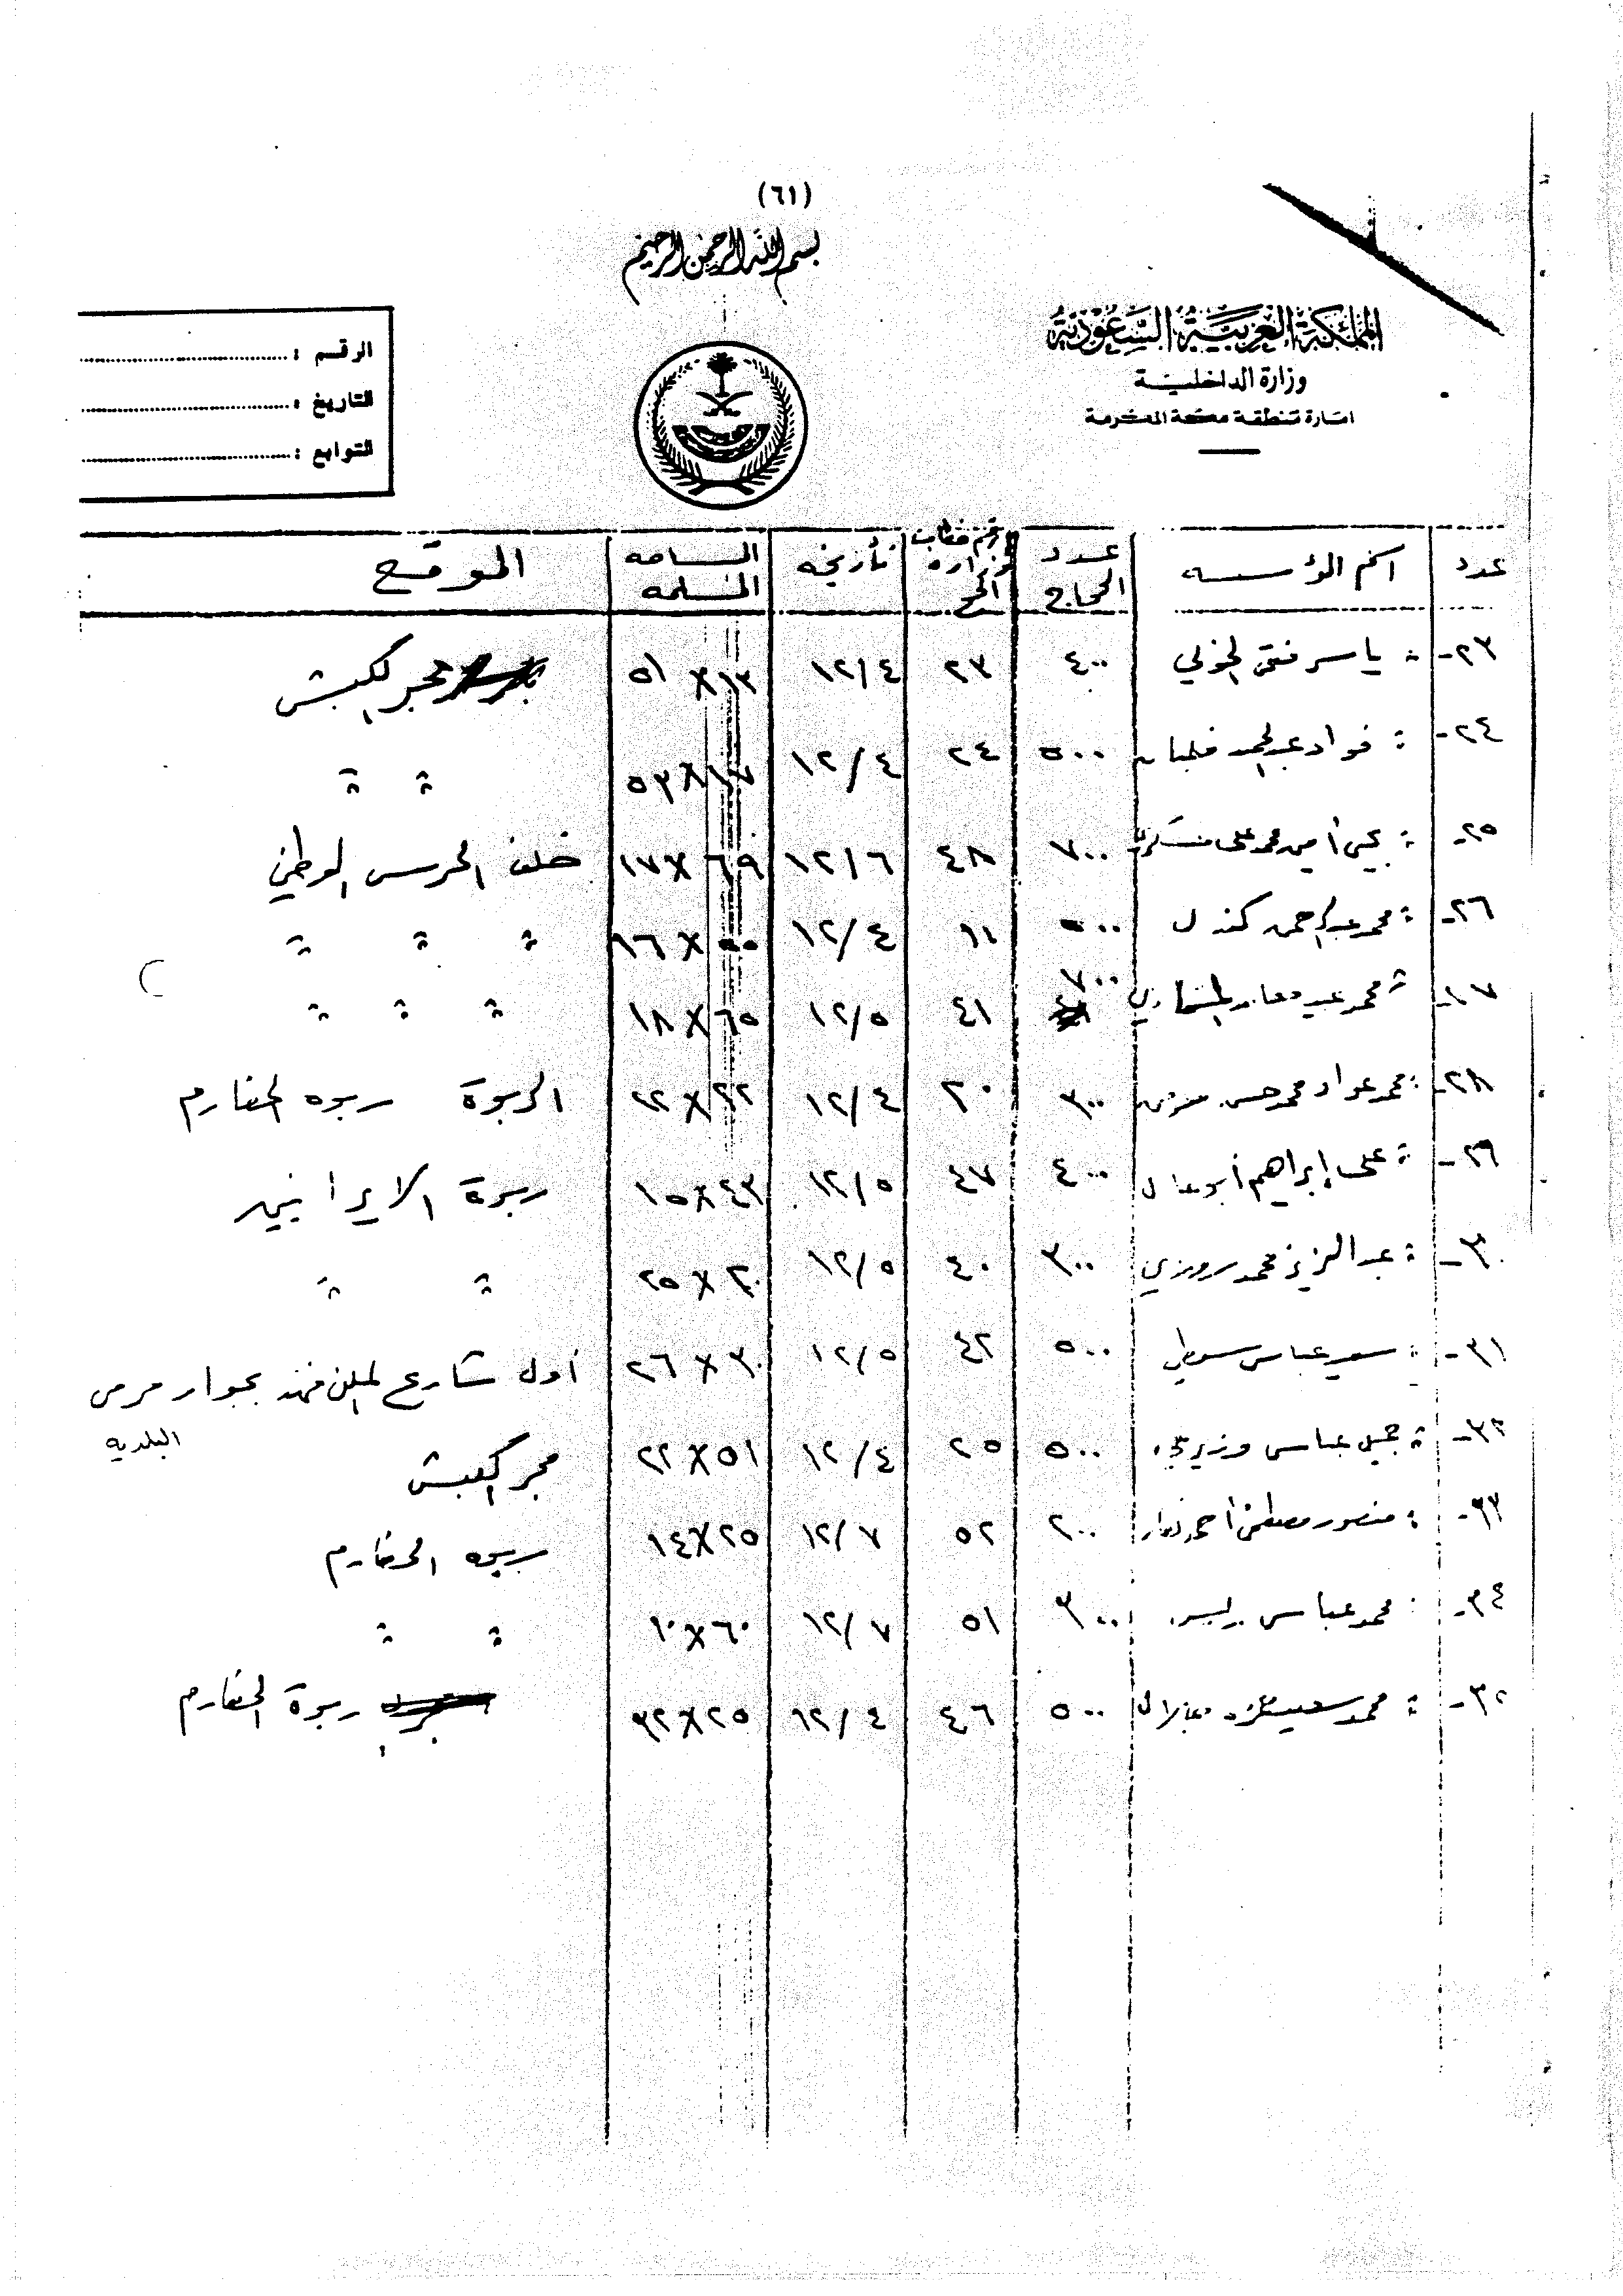 (٦١)
بسم الله الرحمن الرحيم
المملكة العربية السعودية
وزارة الداخلية
امارة منطقة مكة المكرمة
الرقم :
التاريخ :
التوابع :
عدد اسم المؤسسه عدد الحجاج رقم خطاب وزاره الحج تأريخه المساحه المسلمه الموقع
٢٣- " ياسر فتحي الخولي ٤٠٠ ٢٣ ١٢/٤ ١٣×٥١ مجر الكبش
٢٤- " فواد عبدالحميد ٥٠٠ ٢٤ ١٢/٤ ١٧×٥٣ " "
٢٥- " يحيى أمين محمد علي ٧٠٠ ٤٨ ١٢/٦ ٦٩×١٧ خلف الحرس الوطني
٢٦- " محمد عبدالرحمن كندل ٥٠٠ ١٢/٤ ٥٥×١٦ " " "
٢٧- " محمد عبد ٧٠٠ ٤١ ١٢/٥ ٦٥×١٨ " " "
٢٨- " محمد عواد محمد حسن ٣٠٠ ٣٠ ١٢/٤ ٢٢×٢٢ الربوة ربوه الحضارم
٢٩- " علي إبراهيم أبو ٤٠٠ ٤٧ ١٢/٥ ٤٣×١٥ ربوة الايرانيين
٣٠- " عبد العزيز محمد روزي ٣٠٠ ٤٠ ١٢/٥ ٣٠×٢٥ " "
٣١- " سعيد عباس سطي ٥٠٠ ٤٢ ١٢/٥ ٣٠×٢٦ أول شارع الملك فهد بجوار مرمى
البلديه
٣٢- " جميل عباس ٥٠٠ ٢٥ ١٢/٤ ٥١×٢٢ مجر الكبش
٣٣- " منصور مصطفى أحمد ٢٠٠ ٥٢ ١٢/٧ ٢٥×١٤ ربوه الحضارم
٣٤- " محمد عباس ٣٠٠ ٥١ ١٢/٧ ٦٠×١٠ " "
" محمد سعيد ٥٠٠ ٤٦ ١٢/٤ ٢٥×٣٢ ربوة الحضارم